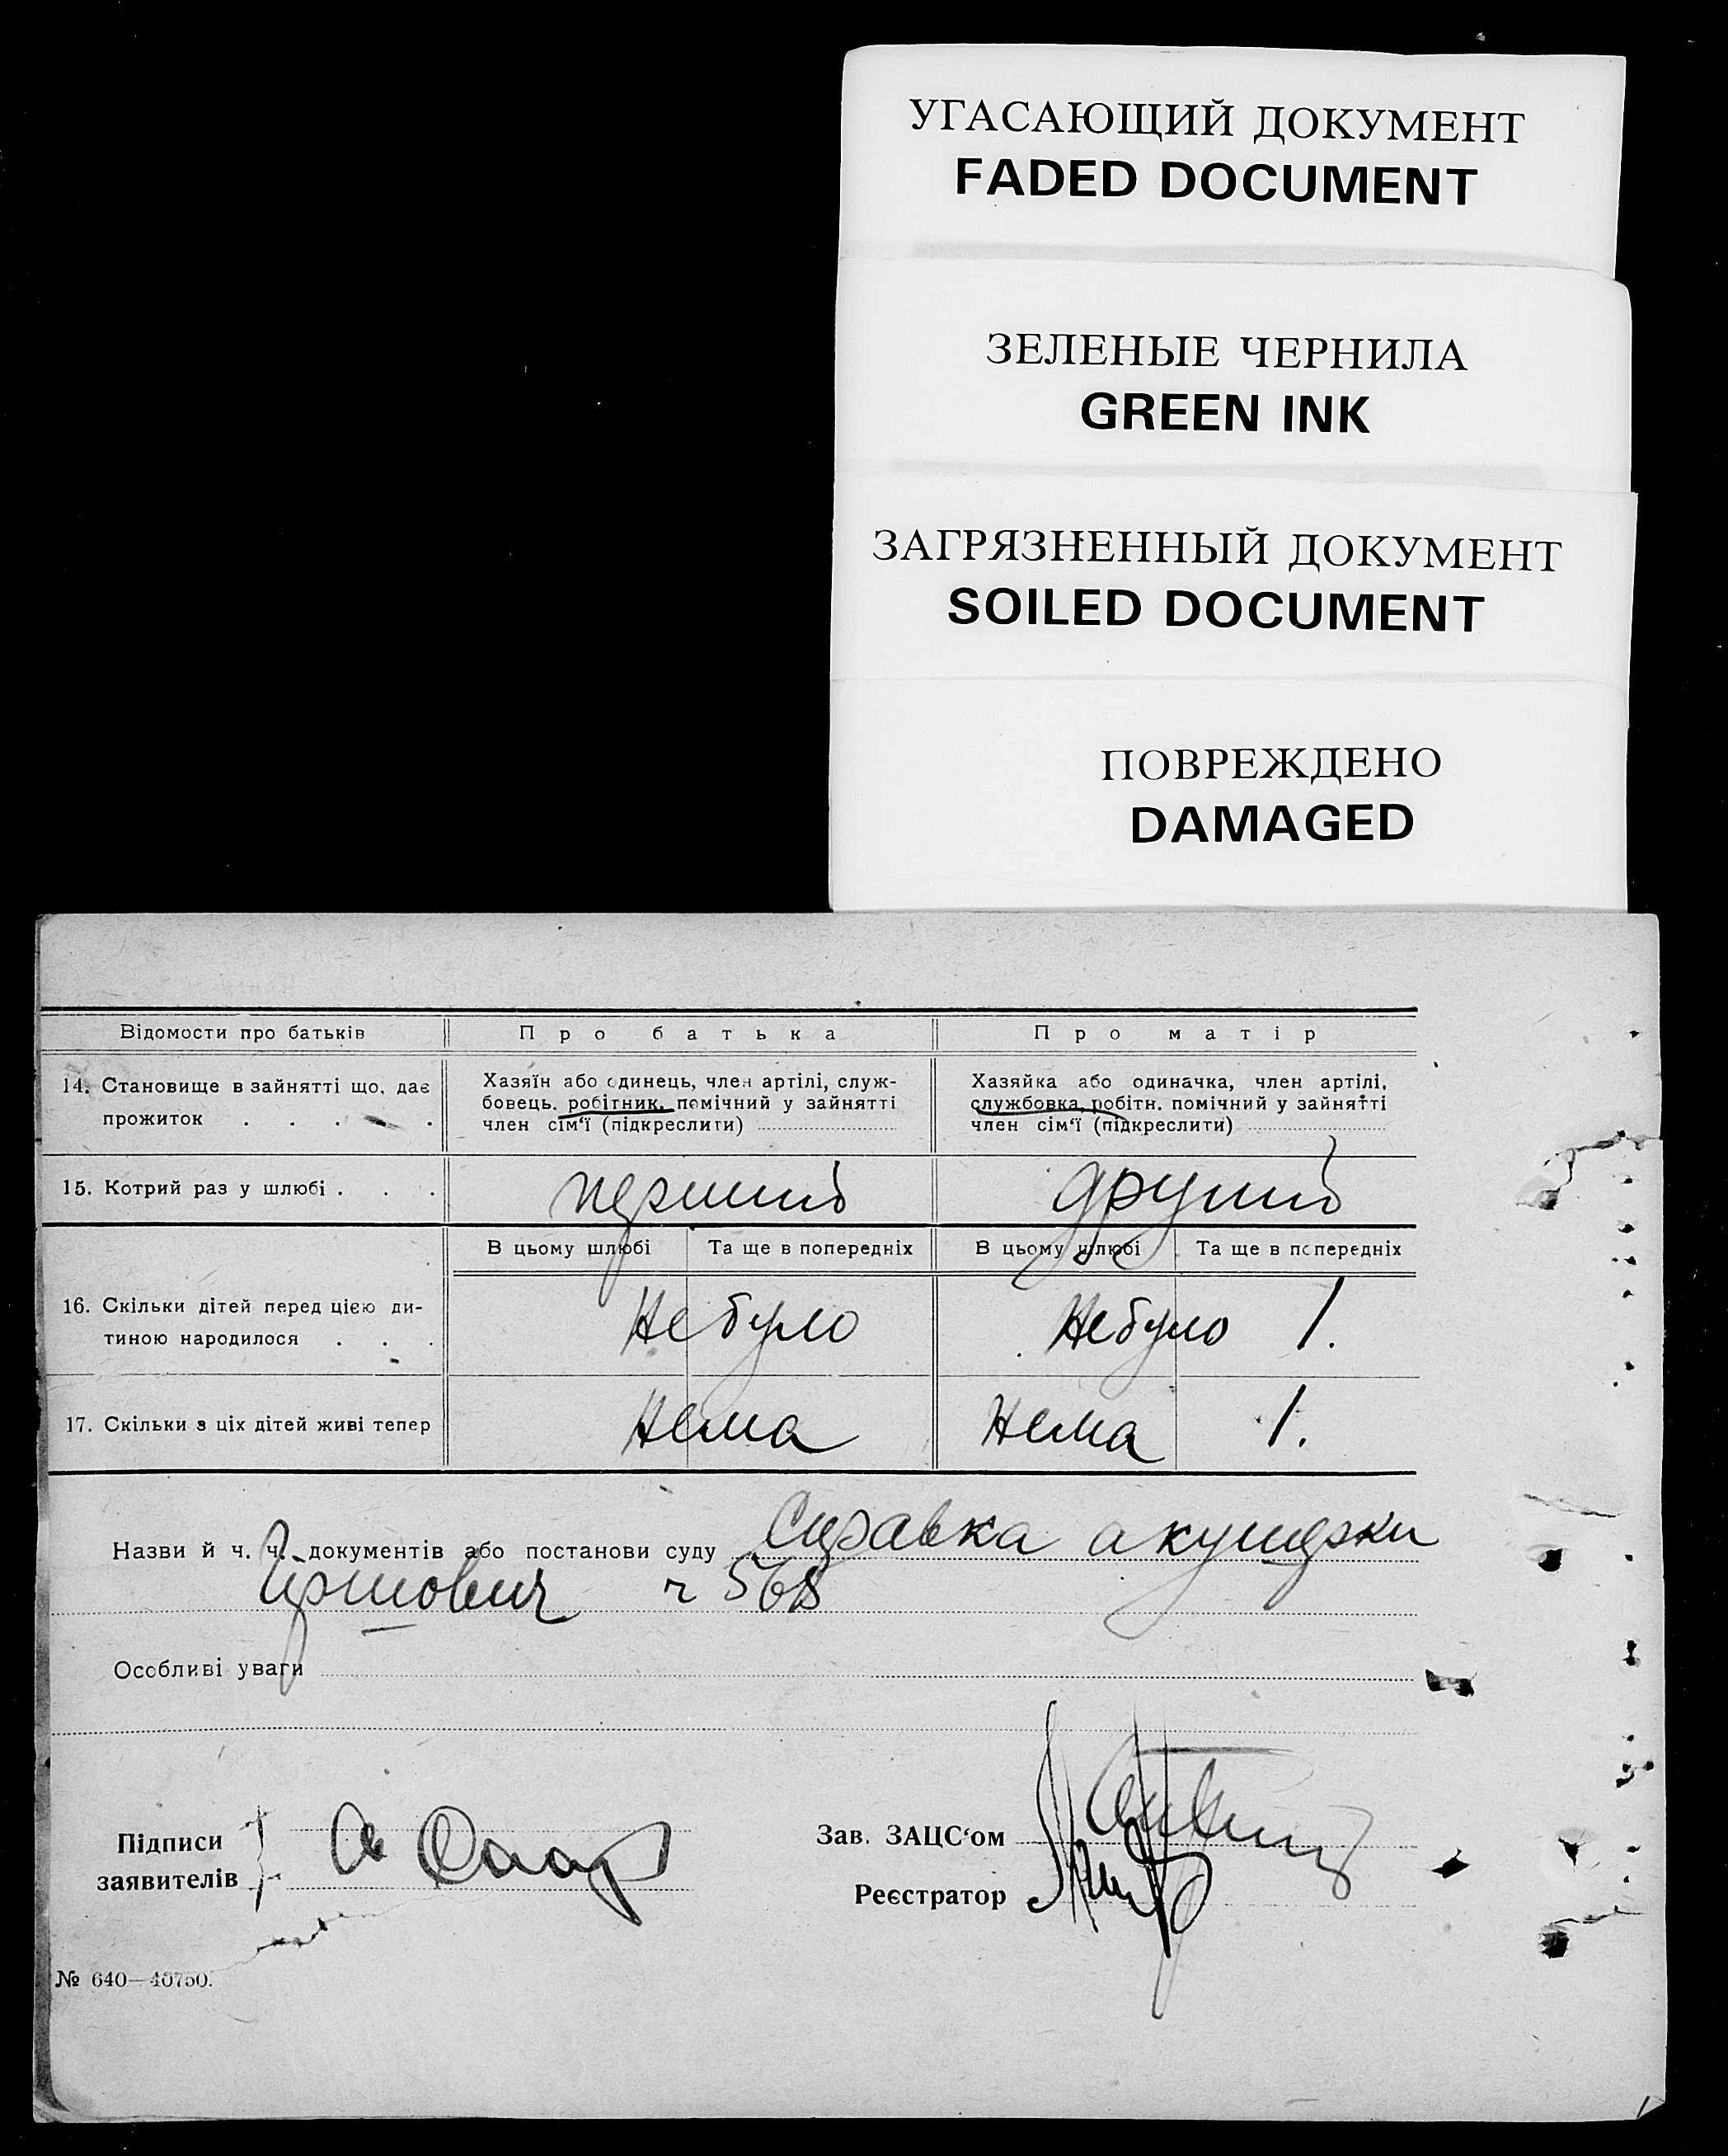 УГАСАЮЩИЙ ДОКУМЕНТ
FADED DOCUMENT
ЗЕЛЕНЫЕ ЧЕРНИЛА
GREEN INK
ЗАГРЯЗНЕННЫЙ ДОКУМЕНТ
SOILED DOCUMENT
ПОВРЕЖДЕНО
DAMAGED
Відомости про батьків
Про батька
Про матір
14. Становище в зайнятті що, дає
прожиток . . . .
Хазяїн або одинець, член артілі, служ-
бовець, робітник, помічний у зайнятті
член сім‘ї (підкреслити)
Хазяйка або одиначка, член артілі,
службовка, робітн. помічний у зайнятті
член сім‘ї (підкреслити)
15. Котрий раз у шлюбі . . .
перший
другий
В цьому шлюбі
Та ще в попередніх
В цьому шлюбі
Та ще в попередніх
16. Скільки дітей перед цією ди-
тиною народилося . . .
Не було
Не було
1.
17. Скільки з ціх дітей живі тепер
Нема
Нема
1.
Назви й ч. ч. документів або постанови суду Справка акушерки
ч 568
Особливі уваги
Підписи
заявителів
Зав. ЗАЦС‘ом
Реєстратор
№ 640—40750.